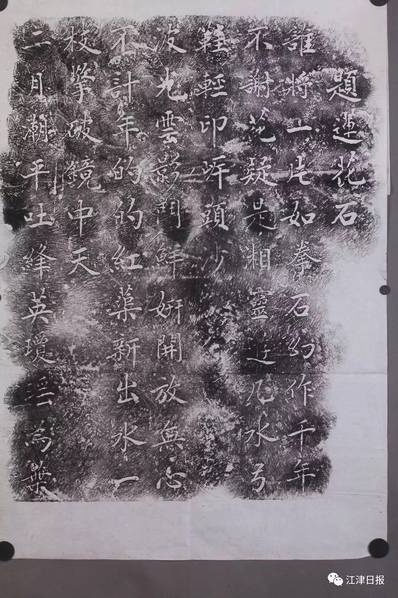 題蓮花石
誰將一片如拳石幻作千年
不謝花疑是湘靈凡水弓
鞋輕印岸頭沙
波光雲影鬥鮮妍開放無心
不計年的的紅蕖新出水一
枝擎破鏡中天
二月潮平吐絳英瓊為
江津日报